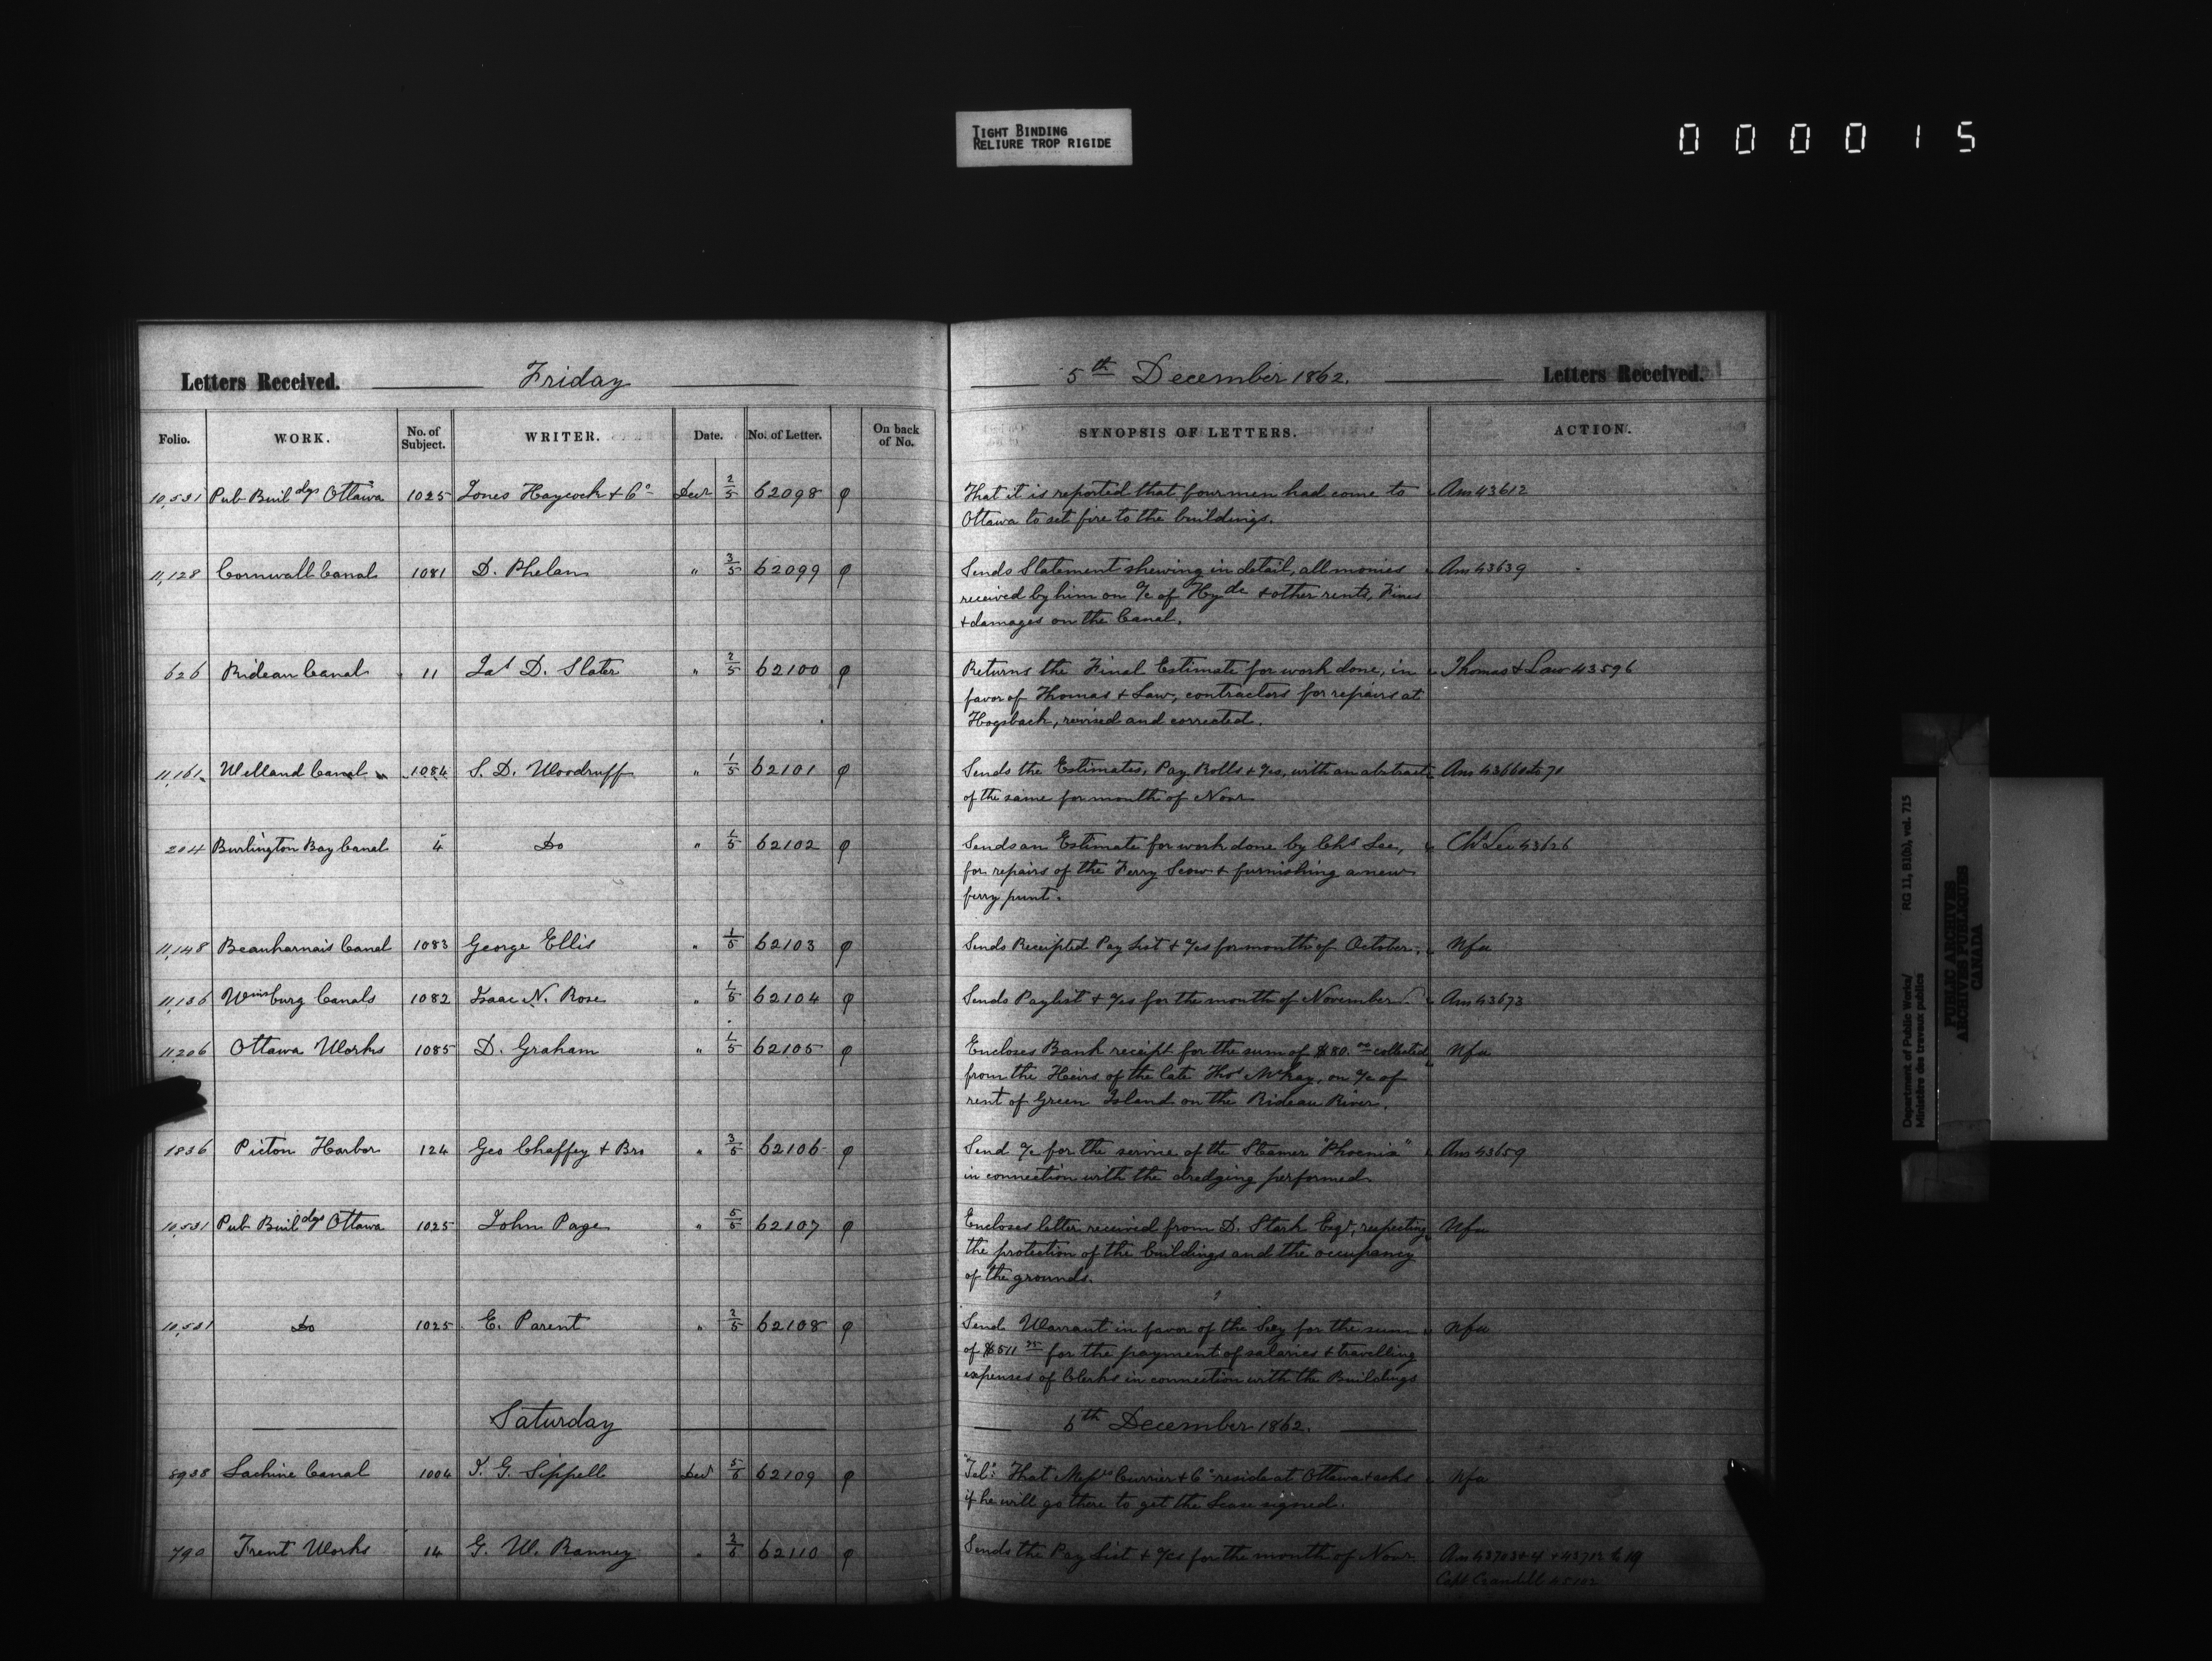 TIGHT BINDING
RELIURE TROP RIGIDE
000015
Letters Received. Friday 5th December 1862. Letters Received.
Folio. WORK. No. of Subject. WRITER. Date. No. of Letter. On back of No. SYNOPSIS OF LETTERS. ACTION.
10,531 Pub Buildgs Ottawa 1025 Jones Haycock + Co Decr 2/5 62098 φ That it is reported that four men had come to Ans 43612
Ottawa to set fire to the buildings.
11,128 Cornwall Canal 1081 D. Phelan " 3/5 62099 φ Sends Statement shewing in detail, all monies Ans 43639
received by him on a/c of Hydc + other rents, Fines
+ damages on the Canal.
626 Rideau Canal 11 Jas D. Slater " 2/5 62100 φ Returns the Final Estimate for work done, in Thomas + Law 43596
favor of Thomas + Law, contractors for repairs at
Hogsback, revised and corrected.
11,161 Welland Canal 1084 S. D. Woodruff " 1/5 62101 φ Sends the Estimates, Pay Rolls + a/cs, with an abstract Ans 43660 to 71
of the same for month of Novr
204 Burlington Bay Canal 4 Do " 1/5 62102 φ Sends an Estimate for work done by Chs Lee, Chs Lee 43626
for repairs of the Ferry Scow + furnishing a new
ferry punt.
11,148 Beauharnais Canal 1083 George Ellis " 1/5 62103 φ Sends Receipted Pay List + a/cs for month of October. Nfa
11,136 Wmsburg Canals 1082 Isaac N. Rose " 1/5 62104 φ Sends Paylist + a/cs for the month of November. Ans 43673
11,206 Ottawa Works 1085 D. Graham " 1/5 62105 φ Encloses Bank receipt for the sum of $80.00 collected Nfa
from the Heirs of the late Thos McKay, on a/c of
rent of Green Island on the Rideau River.
1836 Picton Harbor 124 Geo Chaffey + Bro " 3/5 62106 φ Send a/c for the service of the Steamer "Phoenix" Ans 43659
in connection with the dredging performed.
10,531 Pub Buildgs Ottawa 1025 John Page " 5/5 62107 φ Encloses letter received from D. Stark Esqr, respecting Nfa
the protection of the buildings and the occupancy
of the grounds.
10,531 Do 1025 E. Parent " 2/5 62108 φ Send Warrant in favor of the Secy for the sum Nfa
of $511 for the payment of salaries + travelling
expenses of Clerks in connection with the Buildings
Saturday 6th December 1862.
8938 Lachine Canal 1004 J. G. Sippell Decr 5/6 62109 φ "Tel": That Messrs Currier + Co reside at Ottawa + asks Nfa
if he will go there to get the Lease signed.
790 Trent Works 14 G. W. Ranney " 2/6 62110 φ Sends the Pay List + a/cs for the month of Novr Ans 43703+4 + 43712 to 19
Capt Crandell
Department of Public Works/
Ministère des travaux publics
RG 11, B1(b), vol. 715
PUBLIC ARCHIVES
ARCHIVES PUBLIQUES
CANADA